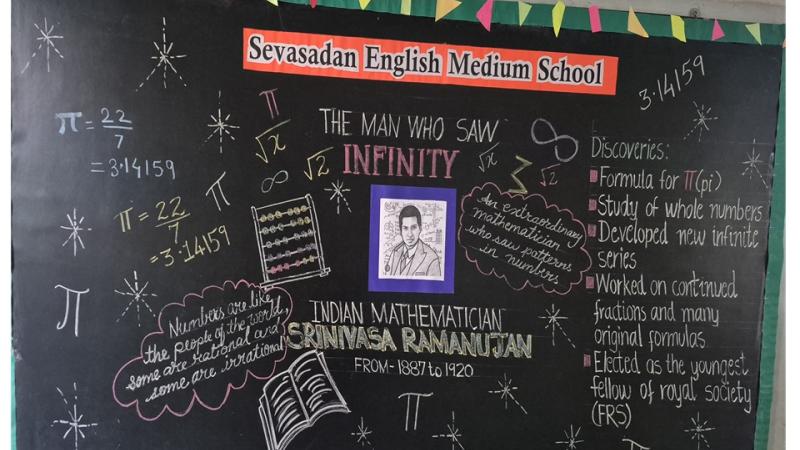 Sevasadan English Medium School
3.14159
π = 22/7
= 3.14159
π = 22/7
= 3.14159
π
π
π
√x
√2
∞
THE MAN WHO SAW
INFINITY
∞
√x
Σ
√2
An extraordinary
mathematician
who saw patterns
in numbers
Numbers are like
the people of the world,
some are rational and
some are irrational
INDIAN MATHEMATICIAN
SRINIVASA RAMANUJAN
FROM - 1887 to 1920
π
Discoveries:
Formula for π (pi)
Study of whole numbers
Developed new infinite
series
Worked on continued
fractions and many
original formulas.
Elected as the youngest
fellow of royal society
(FRS)
π